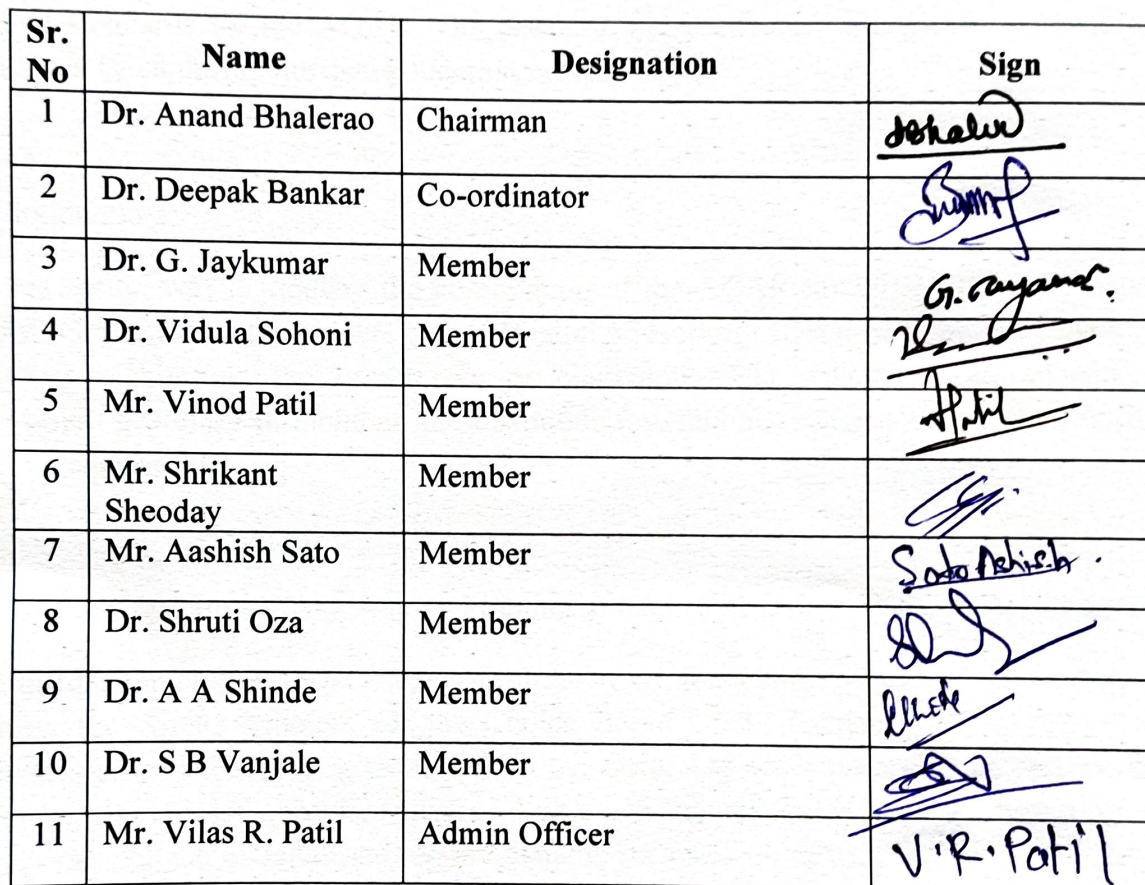 Sr. No Name Designation Sign
1 Dr. Anand Bhalerao Chairman
2 Dr. Deepak Bankar Co-ordinator
3 Dr. G. Jaykumar Member
4 Dr. Vidula Sohoni Member
5 Mr. Vinod Patil Member Patil
6 Mr. Shrikant Member
Sheoday
7 Mr. Aashish Sato Member Sato Ashish.
8 Dr. Shruti Oza Member
9 Dr. A A Shinde Member
10 Dr. S B Vanjale Member
11 Mr. Vilas R. Patil Admin Officer V.R. Patil